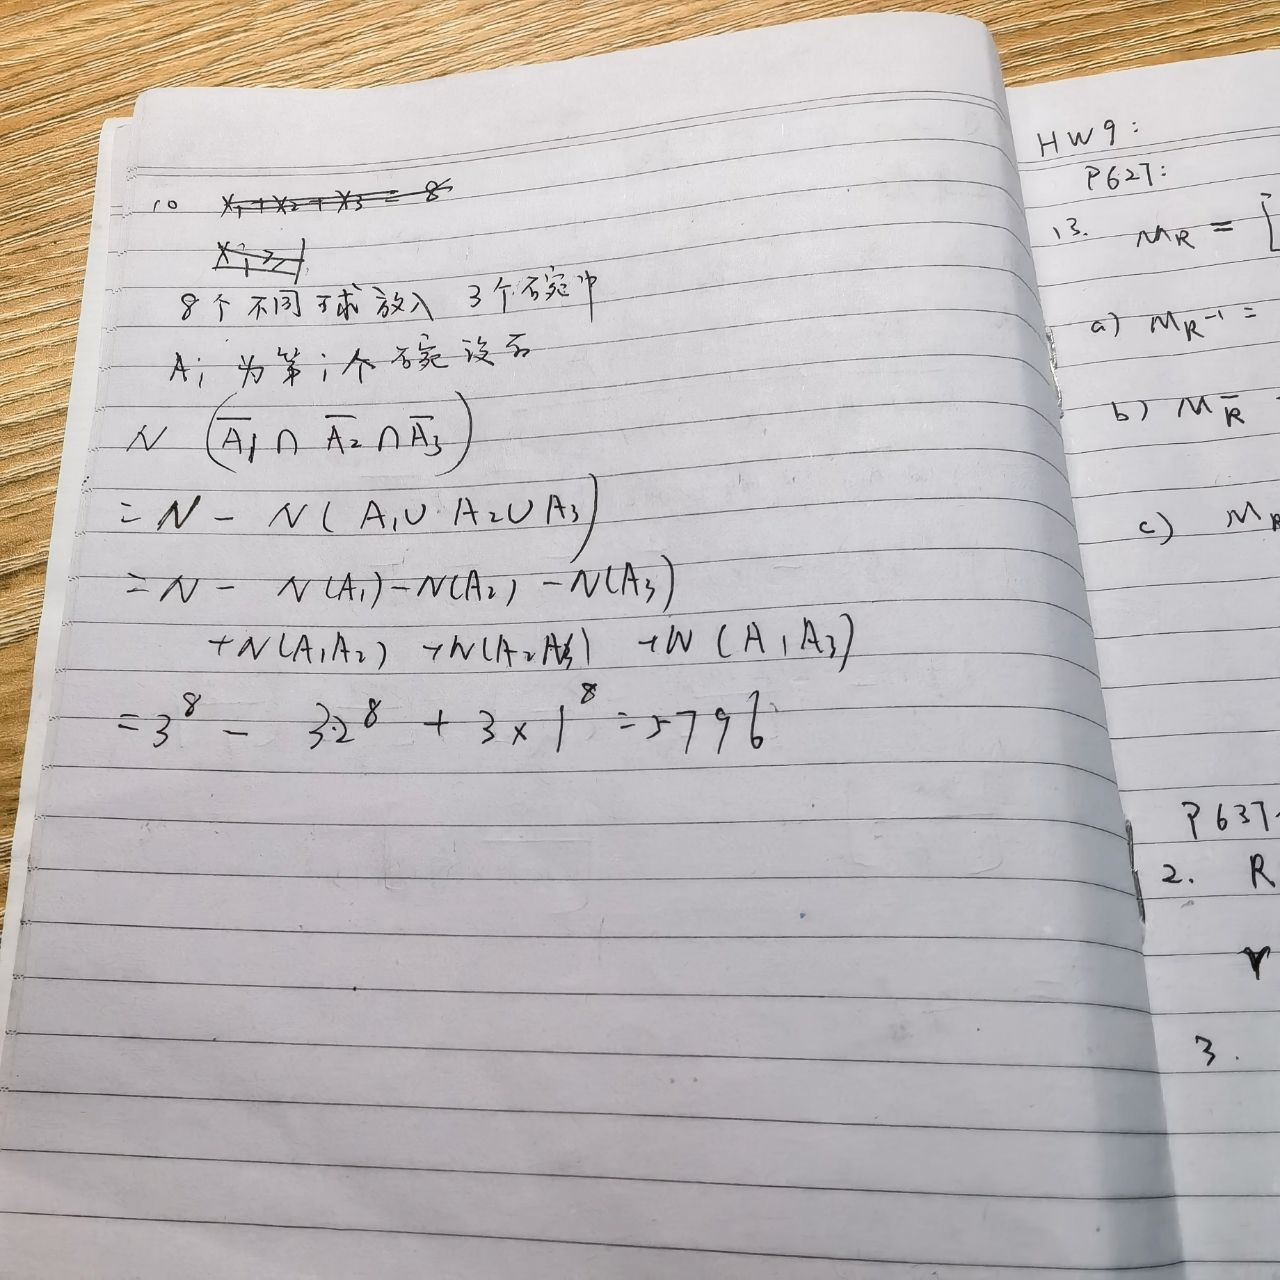 10 X₁+X₂+X₃ = 8
8个不同球放入 3个不同碗中
Ai 为第i个碗没有
N (A̅₁ ∩ A̅₂ ∩ A̅₃)
= N - N( A₁∪ A₂∪ A₃)
= N - N(A₁) - N(A₂) - N(A₃)
+N(A₁A₂) +N(A₂A₃) +N(A₁A₃)
= 3⁸ - 3·2⁸ + 3×1⁸ = 5796
HW9:
P627:
13. MR = [
a) MR⁻¹ =
b) MR̅
c) MR
P637
2. R
3.